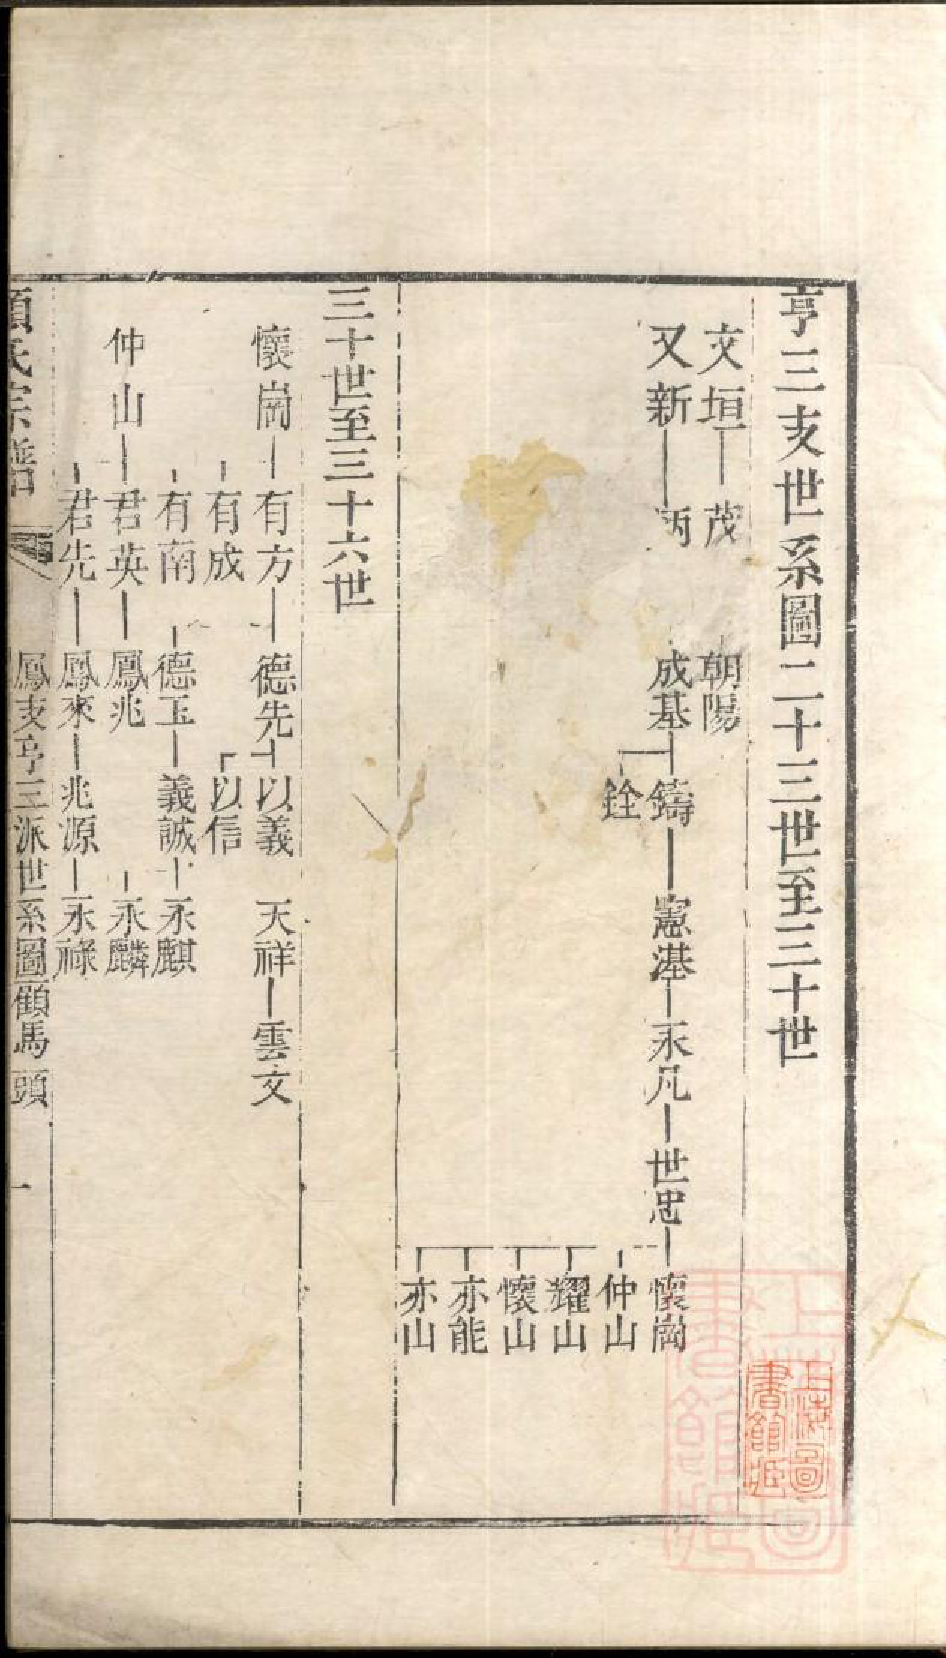 亨三支世系圖二十三世至三十世
文垣 茂 朝陽
又新 炳 成基 鑄 憲基 永凡 世忠 懷崗
銓 仲山
耀山
懷山
亦能
亦山
三十世至三十六世
懷崗 有方 德先 以義 天祥 雲文
有成 以信
有南 德玉 義誠 永麒
仲山 君英 鳳兆 永麟
君先 鳳來 兆源 永祿
氏宗譜 鳳支亨三派世系圖 顧馬頭 一
上海圖書館藏